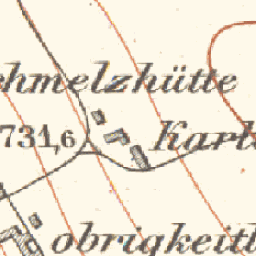 chmelzhütte
731,6 Karls
obrigkeitl